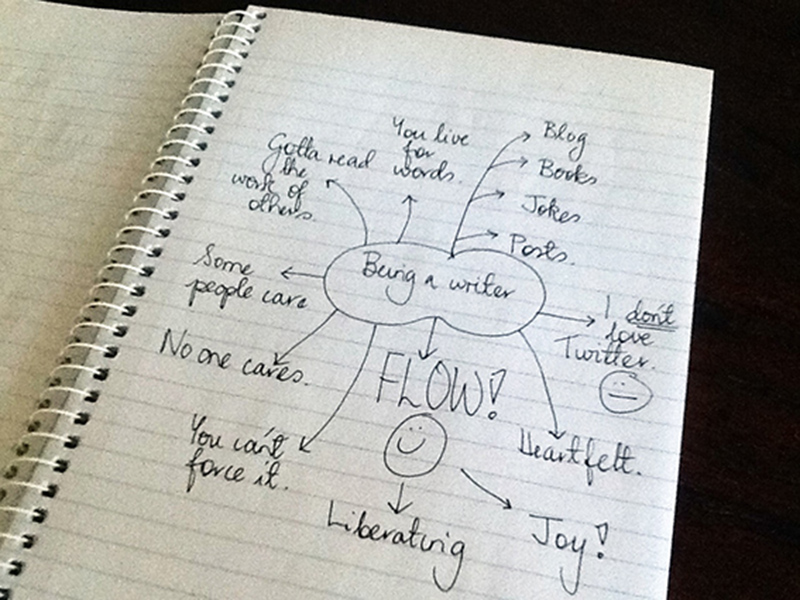 You live
for
words.
Gotta read
the
work of
others.
Blog
Books
Jokes
Posts.
Being a writer
Some
people care
I don't
love
Twitter.
No one cares.
FLOW!
You can't
force it.
Heartfelt.
Liberating
Joy!